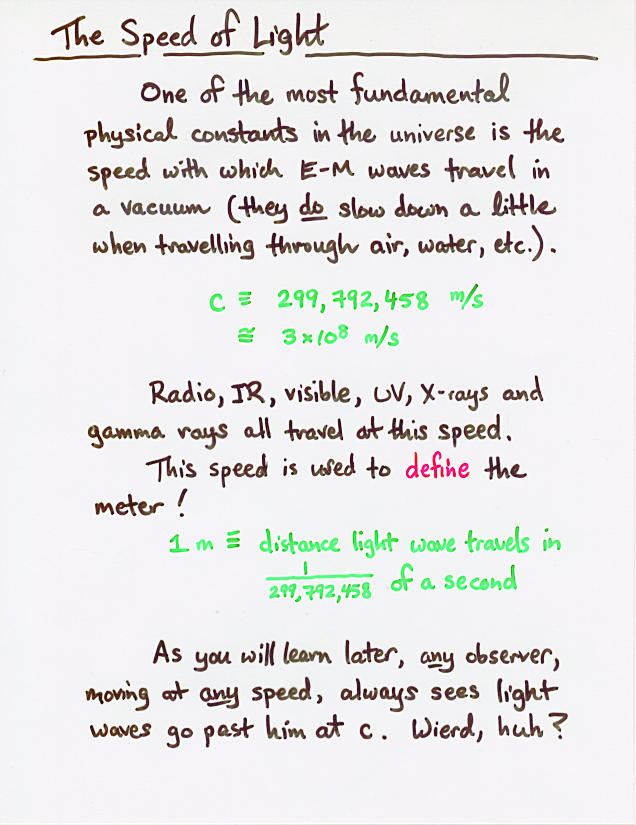 The Speed of Light
One of the most fundamental
physical constants in the universe is the
speed with which E-M waves travel in
a vacuum (they do slow down a little
when travelling through air, water, etc.).
c ≡ 299,792,458 m/s
≅ 3×10⁸ m/s
Radio, IR, visible, UV, X-rays and
gamma rays all travel at this speed.
This speed is used to define the
meter!
1 m ≡ distance light wave travels in
1/299,792,458 of a second
As you will learn later, any observer,
moving at any speed, always sees light
waves go past him at c. Wierd, huh?